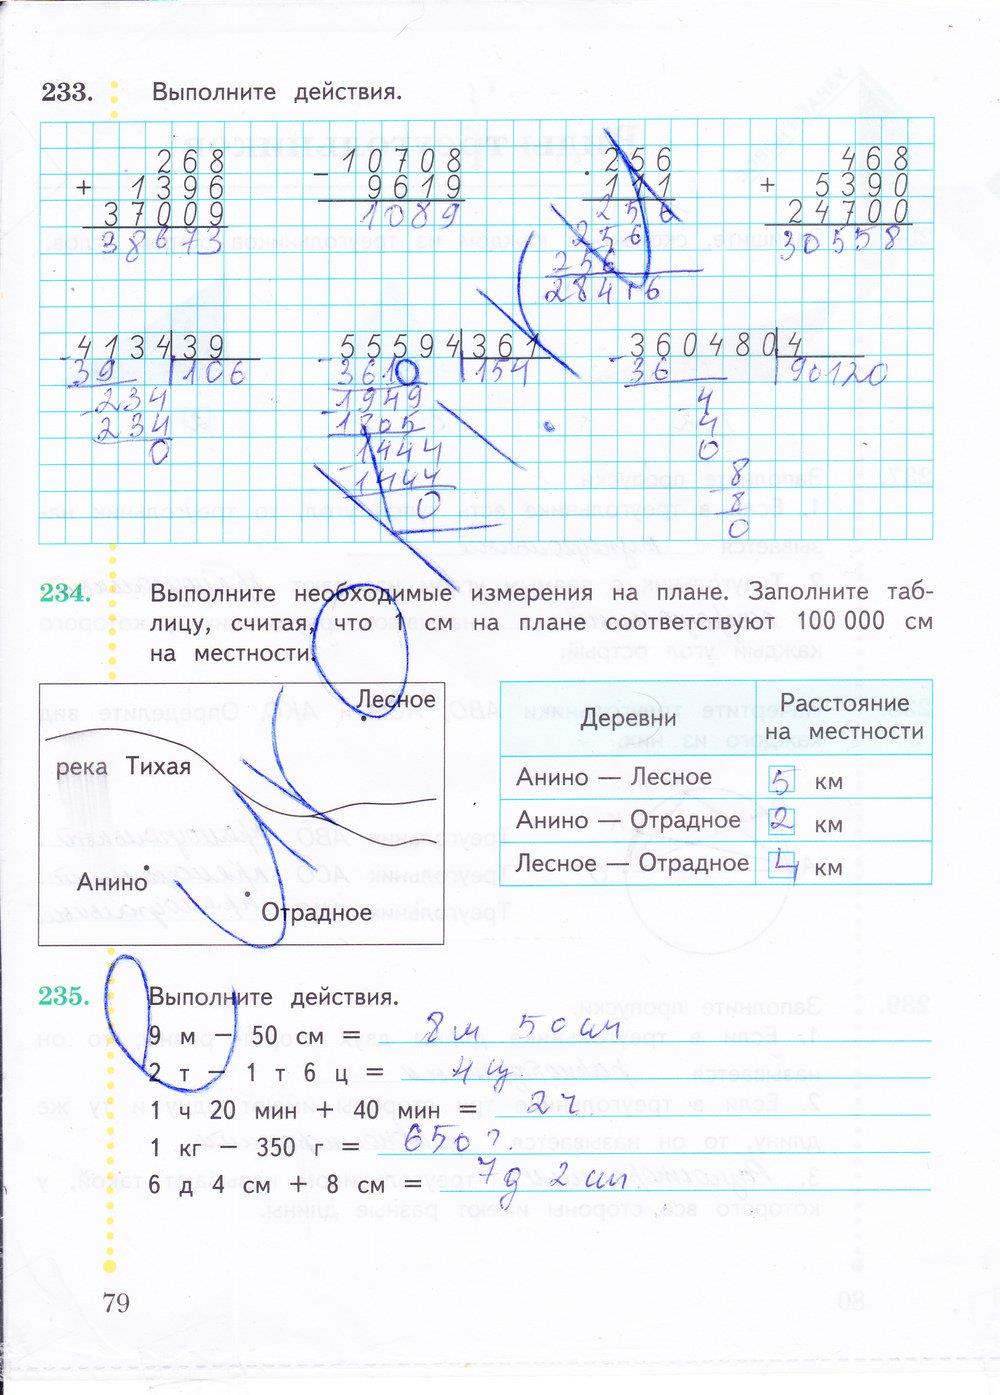 233. Выполните действия.
268 10708 256 468
+ 1396 − 9619 · 111 + 5390
37009 1089 256 24700
38673 256 30558
256
28416
− 4134 39 − 55594 361 − 360480 4
39 106 3610 154 36 90120
− 234 − 1949 − 4
234 1805 4
0 − 1444 0
1444 − 8
0 8
0
234. Выполните необходимые измерения на плане. Заполните таб-
лицу, считая, что 1 см на плане соответствуют 100 000 см
на местности.
Лесное
река Тихая
Анино
Отрадное
Деревни Расстояние на местности
Анино — Лесное 5 км
Анино — Отрадное 2 км
Лесное — Отрадное 4 км
235. Выполните действия.
9 м − 50 см = 8 м 50 см
2 т − 1 т 6 ц = 4 ц.
1 ч 20 мин + 40 мин = 2 ч.
1 кг − 350 г = 650 г.
6 д 4 см + 8 см = 7 д 2 см.
79